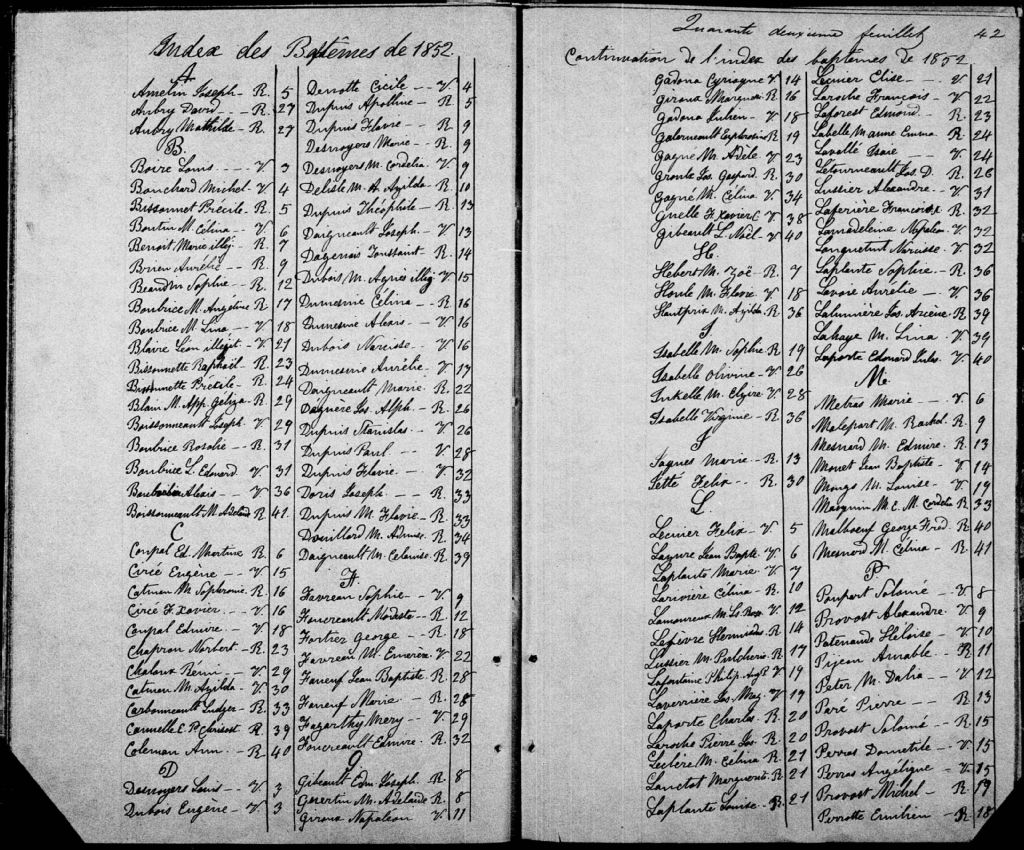 Index des Baptêmes de 1852
A
Amelin Joseph - R. 5
Aubry David - R. 27
Aubry Mathilde - R. 27
B.
Boire Louis - V. 3
Bouchard Michel - V 4
Bissonnet Précile - R. 5
Boutin M. Célina - V 6
Benoit Marie illég. R. 7
Brien Aurélie - - R. 9
Beaudin Sophie - R. 12
Boubrice M. Angéline R. 17
Boubrice M. Lina - V. 18
Blaire Léon illégit - V. 21
Bissonnette Raphaël R. 23
Bissonnette Précile - R. 24
Blain M. App. Géliza R. 29
Boissonneault Joseph. V. 29
Boubrice Rosalie - R. 31
Boubrice L. Edouard V. 31
Alexis - V. 36
Boissonneault M. R. 41.
C
Coupal Ed. Mortime R. 6
Circé Eugène - - V. 15
Catman M. Sophronie R. 16
Circé F. Xavier. - V. 16
Coupal Edmire. - V. 18
Chapron Norbert - R. 23
Chaloux Rémi - - V. 29
Catman M. Azilda - V. 30
Carbonneault Ludger R. 33
Cannelle C. P. Chrisost R. 39
Coleman Ann. - R. 40
D
Desnoyers Louis - V. 3
Dubois Eugène - V. 3
Derrotte Cécile - - V. 4
Dupuis Apolline - R. 5
Dupuis Flavie - - R. 9
Desnoyers Marie - R. 9
Desnoyers M. Cordelia V. 9
Delisle M. A. Azilda - R. 10
Dupuis Théophile - R. 13
Daigneault Joseph - V. 13
Dagenais Toussaint - R. 14
Dubois M. Agnès illég. V. 15
Dumesnie Célina - R. 16
Dumesnie Alexis - V. 16
Dubois Narcisse - - V. 16
Dumesnie Aurélie - V. 17
Daigneault Marie R. 22
Dagnère Jos. Alph. - R. 26
Dupuis Stanislas - V. 26
Dupuis Paul - - V. 28
Dupuis Flavie - - V. 32
Doris Joseph - - R. 33
Dupuis M. Flavie. - R. 33
Douillard M. Admire. R. 34
Daigneault M. Celanise. R. 39
F
Favreau Sophie - - V. 9
Foucreault Modeste. - R. 12
Fortier George - - R. 18
Favreau M. Emerèze V. 22
Faneuf Jean Baptiste R. 28
Faneuf Marie - R. 28
Fagarthy Mery - V. 29
Foucreault Edmire. R. 32
G
Gibeault Edm. Joseph. R. 8
Guertin M. Adelaide R. 8
Giroux Napoleon V. 11
Quarante deuxième feuillet 42
Continuation de l'index des baptêmes de 1852
Gadoua Cyriaque V 14
Giroux Margueri. R 16
Gadoua Julien - V 18
Galerneault Euphrosine R 19
Gagné M. Adèle V 23
Groulx Jos. Gaspard. R. 30
Gagné M. Célina V. 34
Gruelle F. Xavier C V. 38
Gibeault L. Noël - V 40
H.
Hébert M. Zoë - R. 7
Houle M. Flavie V. 18
Hautprix M. Azilda R. 36
I
Isabelle M. Sophie R. 19
Isabelle Olivine - V. 26
M. Elzire V. 28
Isabelle Virginie - R. 36
J
Jaques Marie - R. 13
Jette Felix - - R. 30
L.
Lecuier Felix - V. 5
Jean Bapte. V. 6
Laplante Marie V. 7
Larivière Célina - R. 10
Lamoureux M. Ls. V. 12
Lefèvre R. 14
Lussier M. Pulcherie R. 17
Lafontaine Philip. Augt. V. 19
Laverrière Jos. Maz. V. 19
Laporte Charles. R. 20
Laroche Pierre Jos. R. 20
Leclère M. Célina R. 21
Lanctot Marguerite R. 21
Laplante Louise. R. 21
Lecuier Elise - - V 21
Laroche François - V. 22
Laforest Edmond. - R. 23
Labelle Marine Emma R. 24
Lavallé Isaïe - - V. 24
Letourneault Jos. D. R. 26
Lussier Alexandre. - V. 31
Laferière François R. 32
Lamadeleine Napoléon V. 32
Longuetint Narcisse - V. 32
Laplante Sophie - R. 36
Lavoie Aurélie - V. 36
Lalumière Jos. Arsène. R. 39
Lahaye M. Lina - V. 39
Laporte Edouard Jules. V. 40
M.
Metras Marie - - V. 6
Malepart M. Rachel. R. 9
Mesnard M. Edmire. R. 13
Monet Jean Baptiste - V. 14
Monge M. Louise. - V. 19
M. E. M. Cordélia R. 33
Malboeuf George Fred. R. 40
Mesnard M. Célina R. 41
P.
Poupart Salomé - V. 8
Provost Alexandre. V. 9
Patenaude Héloise - V. 10
Pijeon Amable. - R. 11
Pater M. Dalia - V. 12
Paré Pierre - - R. 13
Provost Salomé - R. 15
Perras Dometile - V. 15
Perras Angélique - V. 15
Provost Michel - R. 19
Perrotte Emilien R. 18